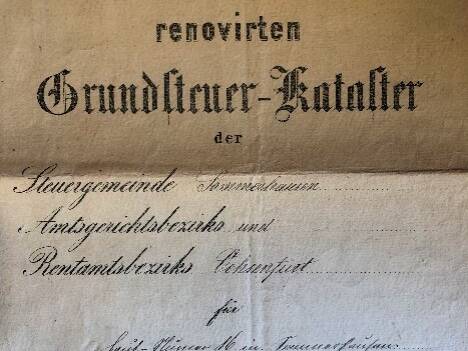 renovirten
Grundsteuer-Kataster
der
Steuergemeinde Sommerhausen
Amtsgerichtsbezirks und
Rentamtsbezirks Ochsenfurt
für
Haus-Numer 16 in Sommerhausen